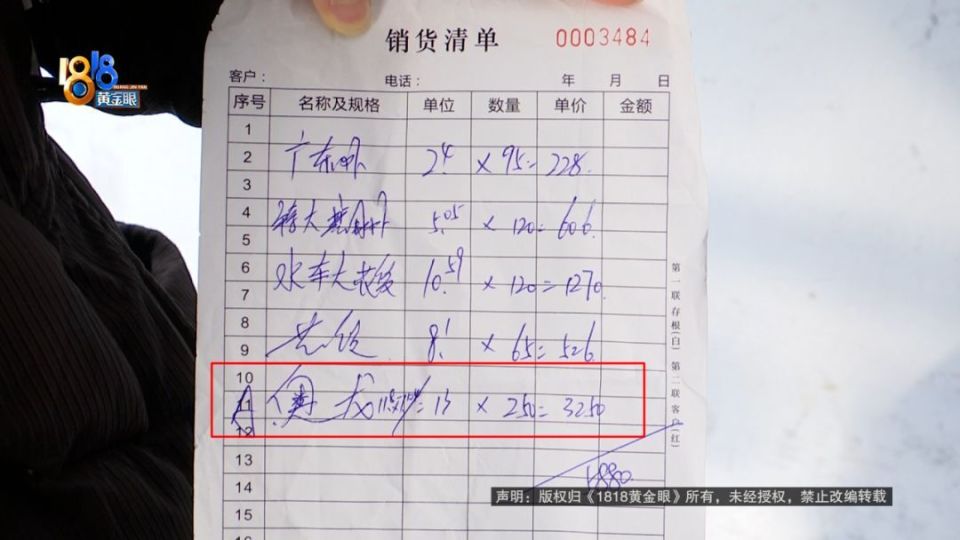 1818
黄金眼
销货清单 0003484
客户： 电话： 年 月 日
序号 名称及规格 单位 数量 单价 金额
1
2 广东 2.4 × 95= 228.
3
4 5.05 × 120= 606.
5
6 水车大 10.59 × 120= 1270.
7
8 8.1 × 65= 526.
9
10
11 龙 = 13 × 250= 3250
12
13
14
15
第一联存根(白) 第二联客户(红)
声明：版权归《1818黄金眼》所有，未经授权，禁止改编转载